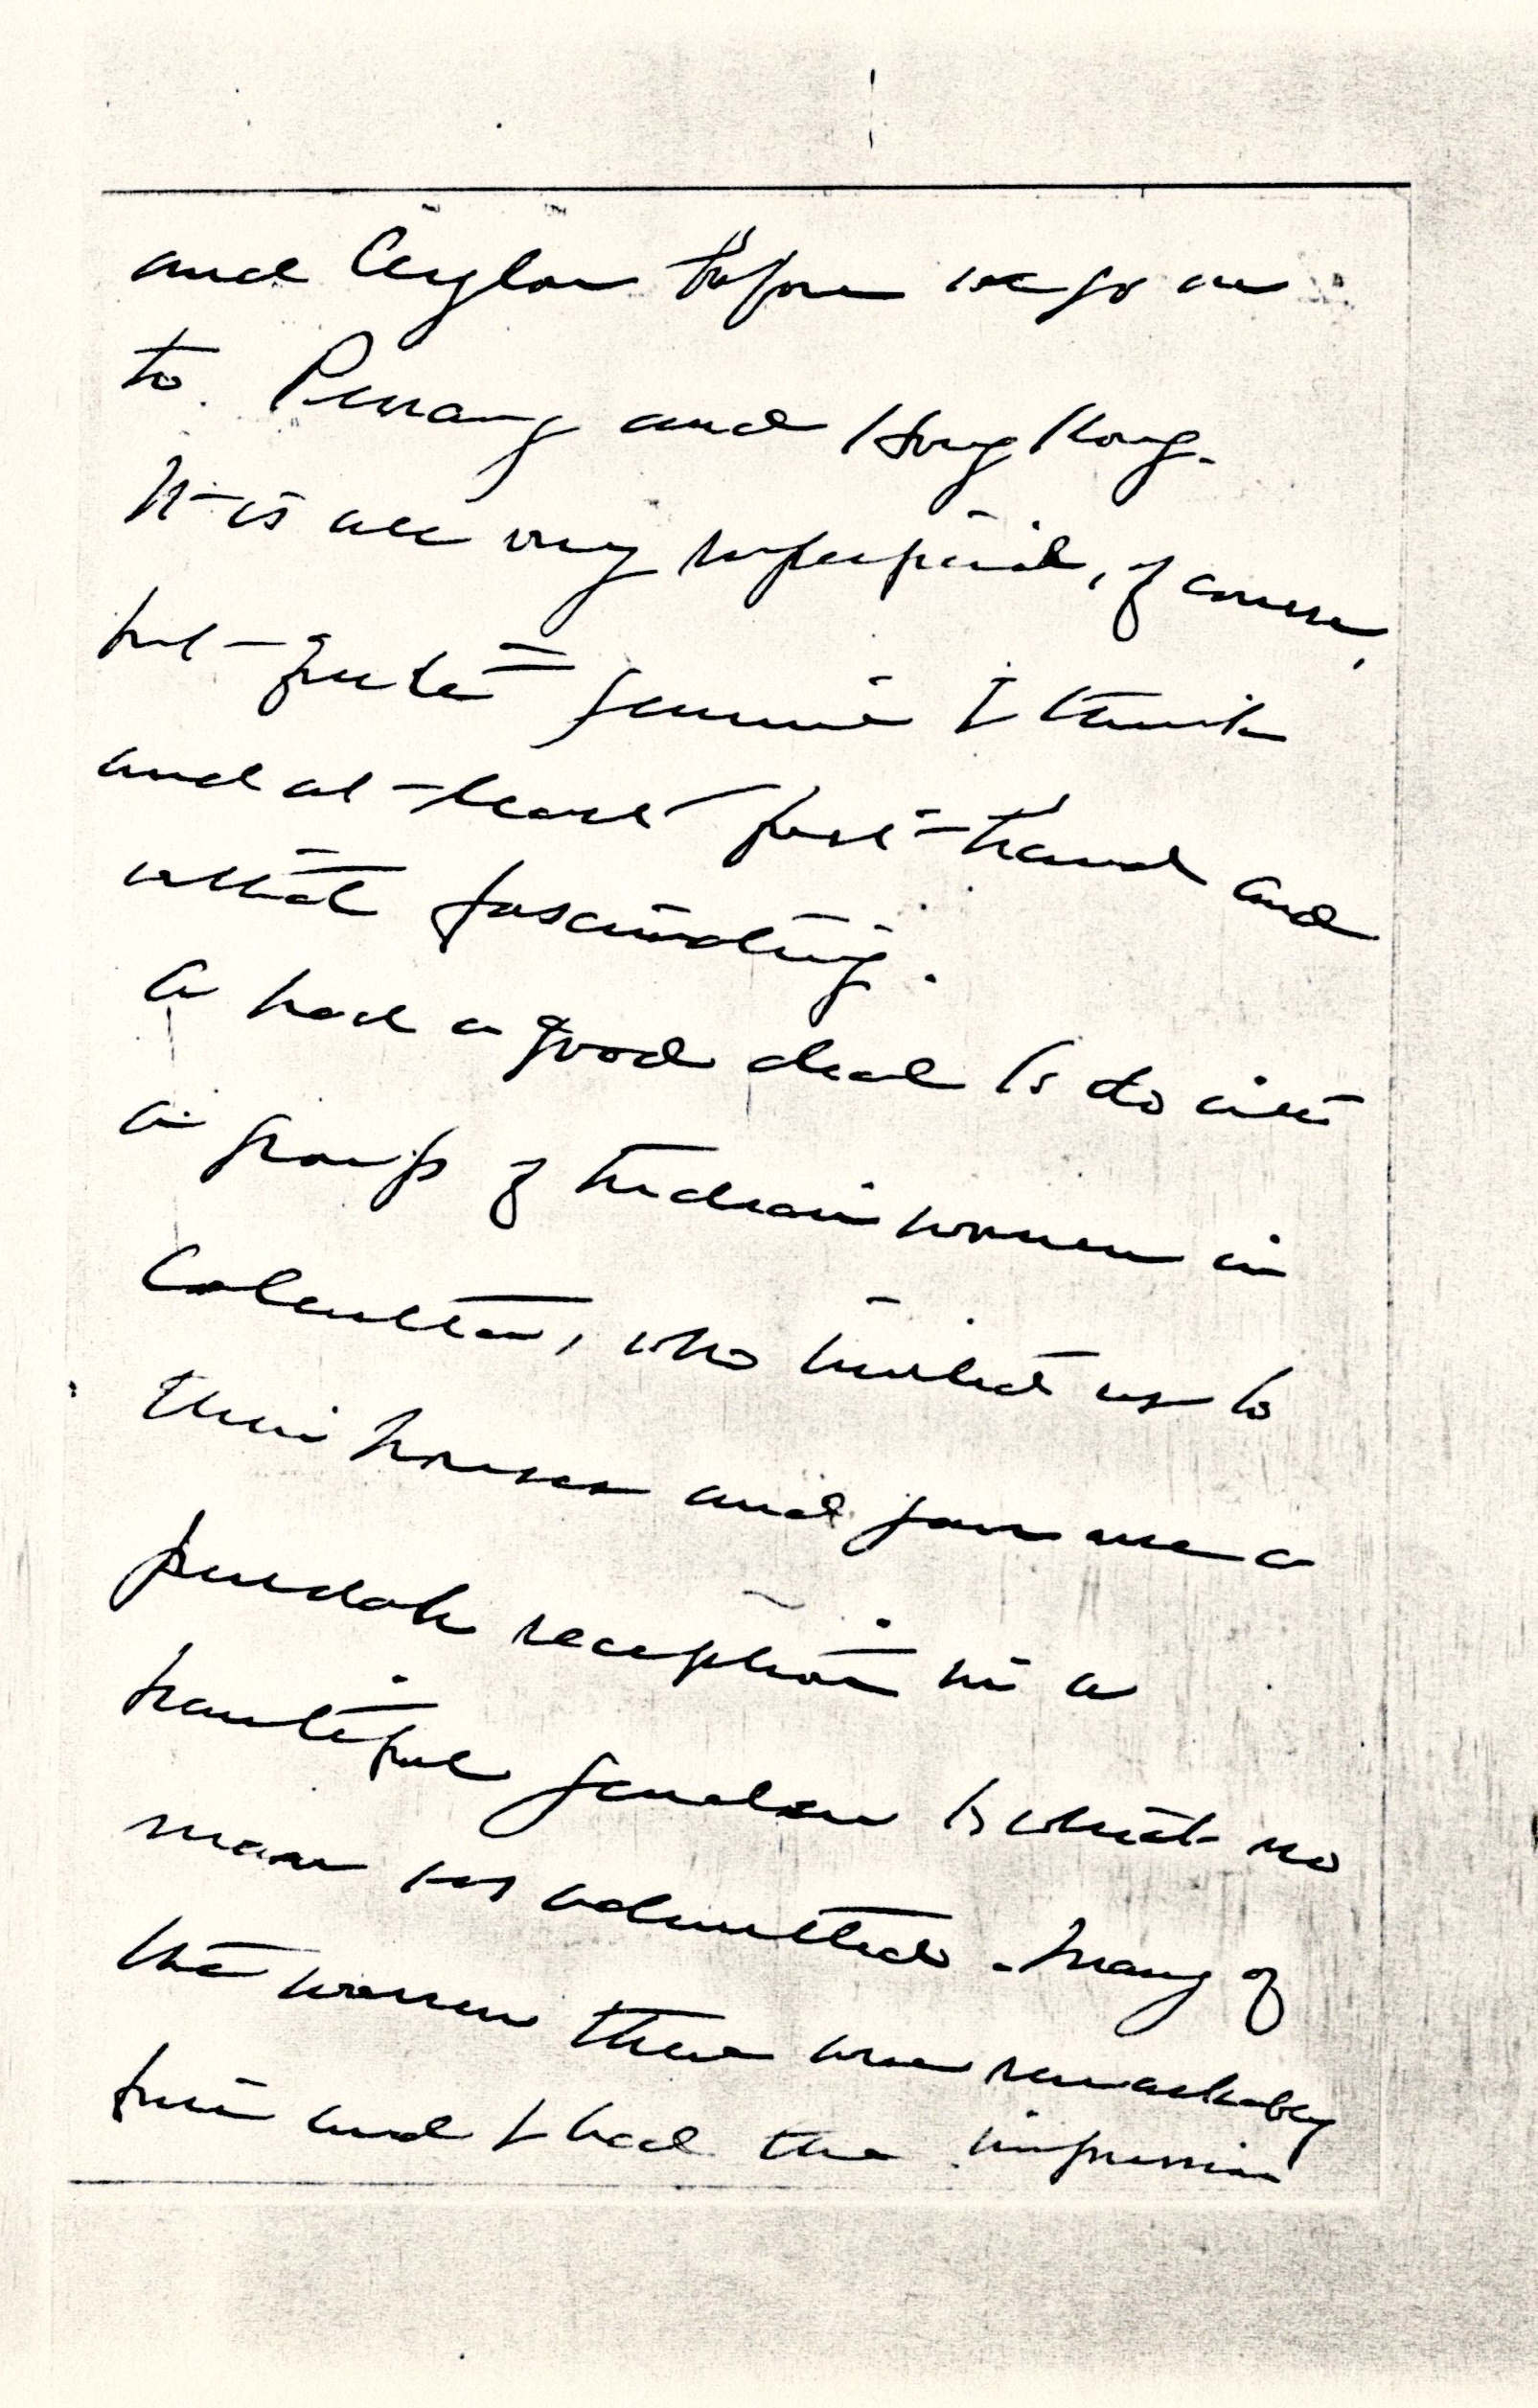 and Ceylon before we go on
to Penang and Hong Kong.
It is all very superficial, of course,
but quite genuine I think
and at least first-hand and
fascinating.
had a good deal to do with
a group of Indian women in
Calcutta, who invited us to
their houses and gave me a
purdah reception in a
beautiful garden to which no
man was admitted. Many of
the women there were remarkably
fine and I had the impression